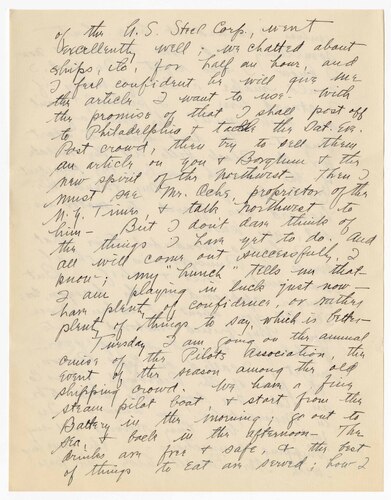 of the U. S. Steel Corp., went
excellently well; we chatted about
ships, etc, for half an hour, and
I feel confident he will give me
the article I want to use. With
the promise of that I shall post off
to Philadelphia & tackle the Sat. Eve.
Post crowd, then try to sell them
an article on you & Borglum & the
new spirit of the northwest — Then I
must see Mr. Ochs, proprietor of the
N.Y. Times & talk northwest to
him — But I don't dare think of
the things I have yet to do. And
all will come out successfully, I
know; my "hunch" tells me that
I am playing in luck just now —
have plenty of confidence, or rather
plenty of things to say, which is better —
Tuesday I am going on the annual
cruise of the Pilots Association, the
event of the season among the old
shipping crowd. We have a fine
steam pilot boat & start from the
Battery in the morning; go out to
sea & back in the afternoon — The
drinks are free & safe, & the best
of things to eat are served; how I